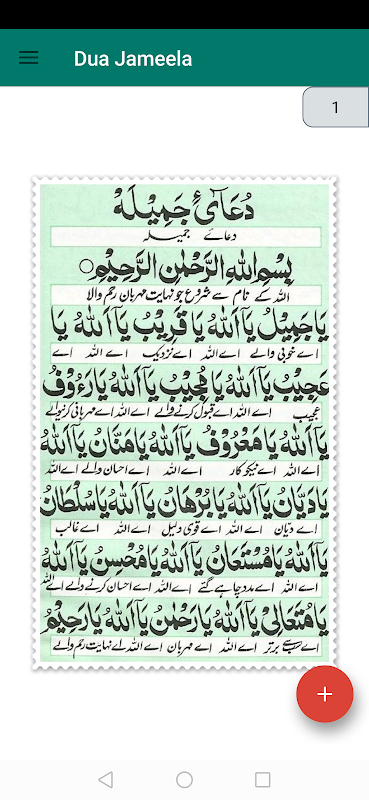 Dua Jameela
1
دُعَائ جَمِيْلَهْ
دعائے جمیلہ
بِسْمِ اللهِ الرَّحْمٰنِ الرَّحِيْمِ
اللہ کے نام سے شروع جو نہایت مہربان رحم والا
يَا جَمِيْلُ يَا اَللهُ يَا قَرِيْبُ يَا اَللهُ يَا
اے خوبی والے اے اللہ اے نزدیک اے اللہ اے
عَجِيْبُ يَا اَللهُ يَا مُجِيْبُ يَا اَللهُ يَا رَءُوْفُ
عجیب اے اللہ اے قبول کرنے والے اے اللہ اے مہربانی کرنیوالے
يَا اَللهُ يَا مَعْرُوْفُ يَا اَللهُ يَا مَنَّانُ يَا اَللهُ
اے اللہ اے نیکوکار اے اللہ اے احسان والے اے اللہ
يَا دَيَّانُ يَا اَللهُ يَا بُرْهَانُ يَا اَللهُ يَا سُلْطَانُ
اے دیان اے اللہ اے قوی دلیل اے اللہ اے غالب
يَا اَللهُ يَا مُسْتَعَانُ يَا اَللهُ يَا مُحْسِنُ يَا اَللهُ
اے اللہ اے مدد چاہے گئے اے اللہ اے احسان کرنے والے اے اللہ
يَا مُتَعَالِىْ يَا اَللهُ يَا رَحْمٰنُ يَا اَللهُ يَا رَحِيْمُ
اے سب سے برتر اے اللہ اے مہربان اے اللہ اے نہایت رحم والے